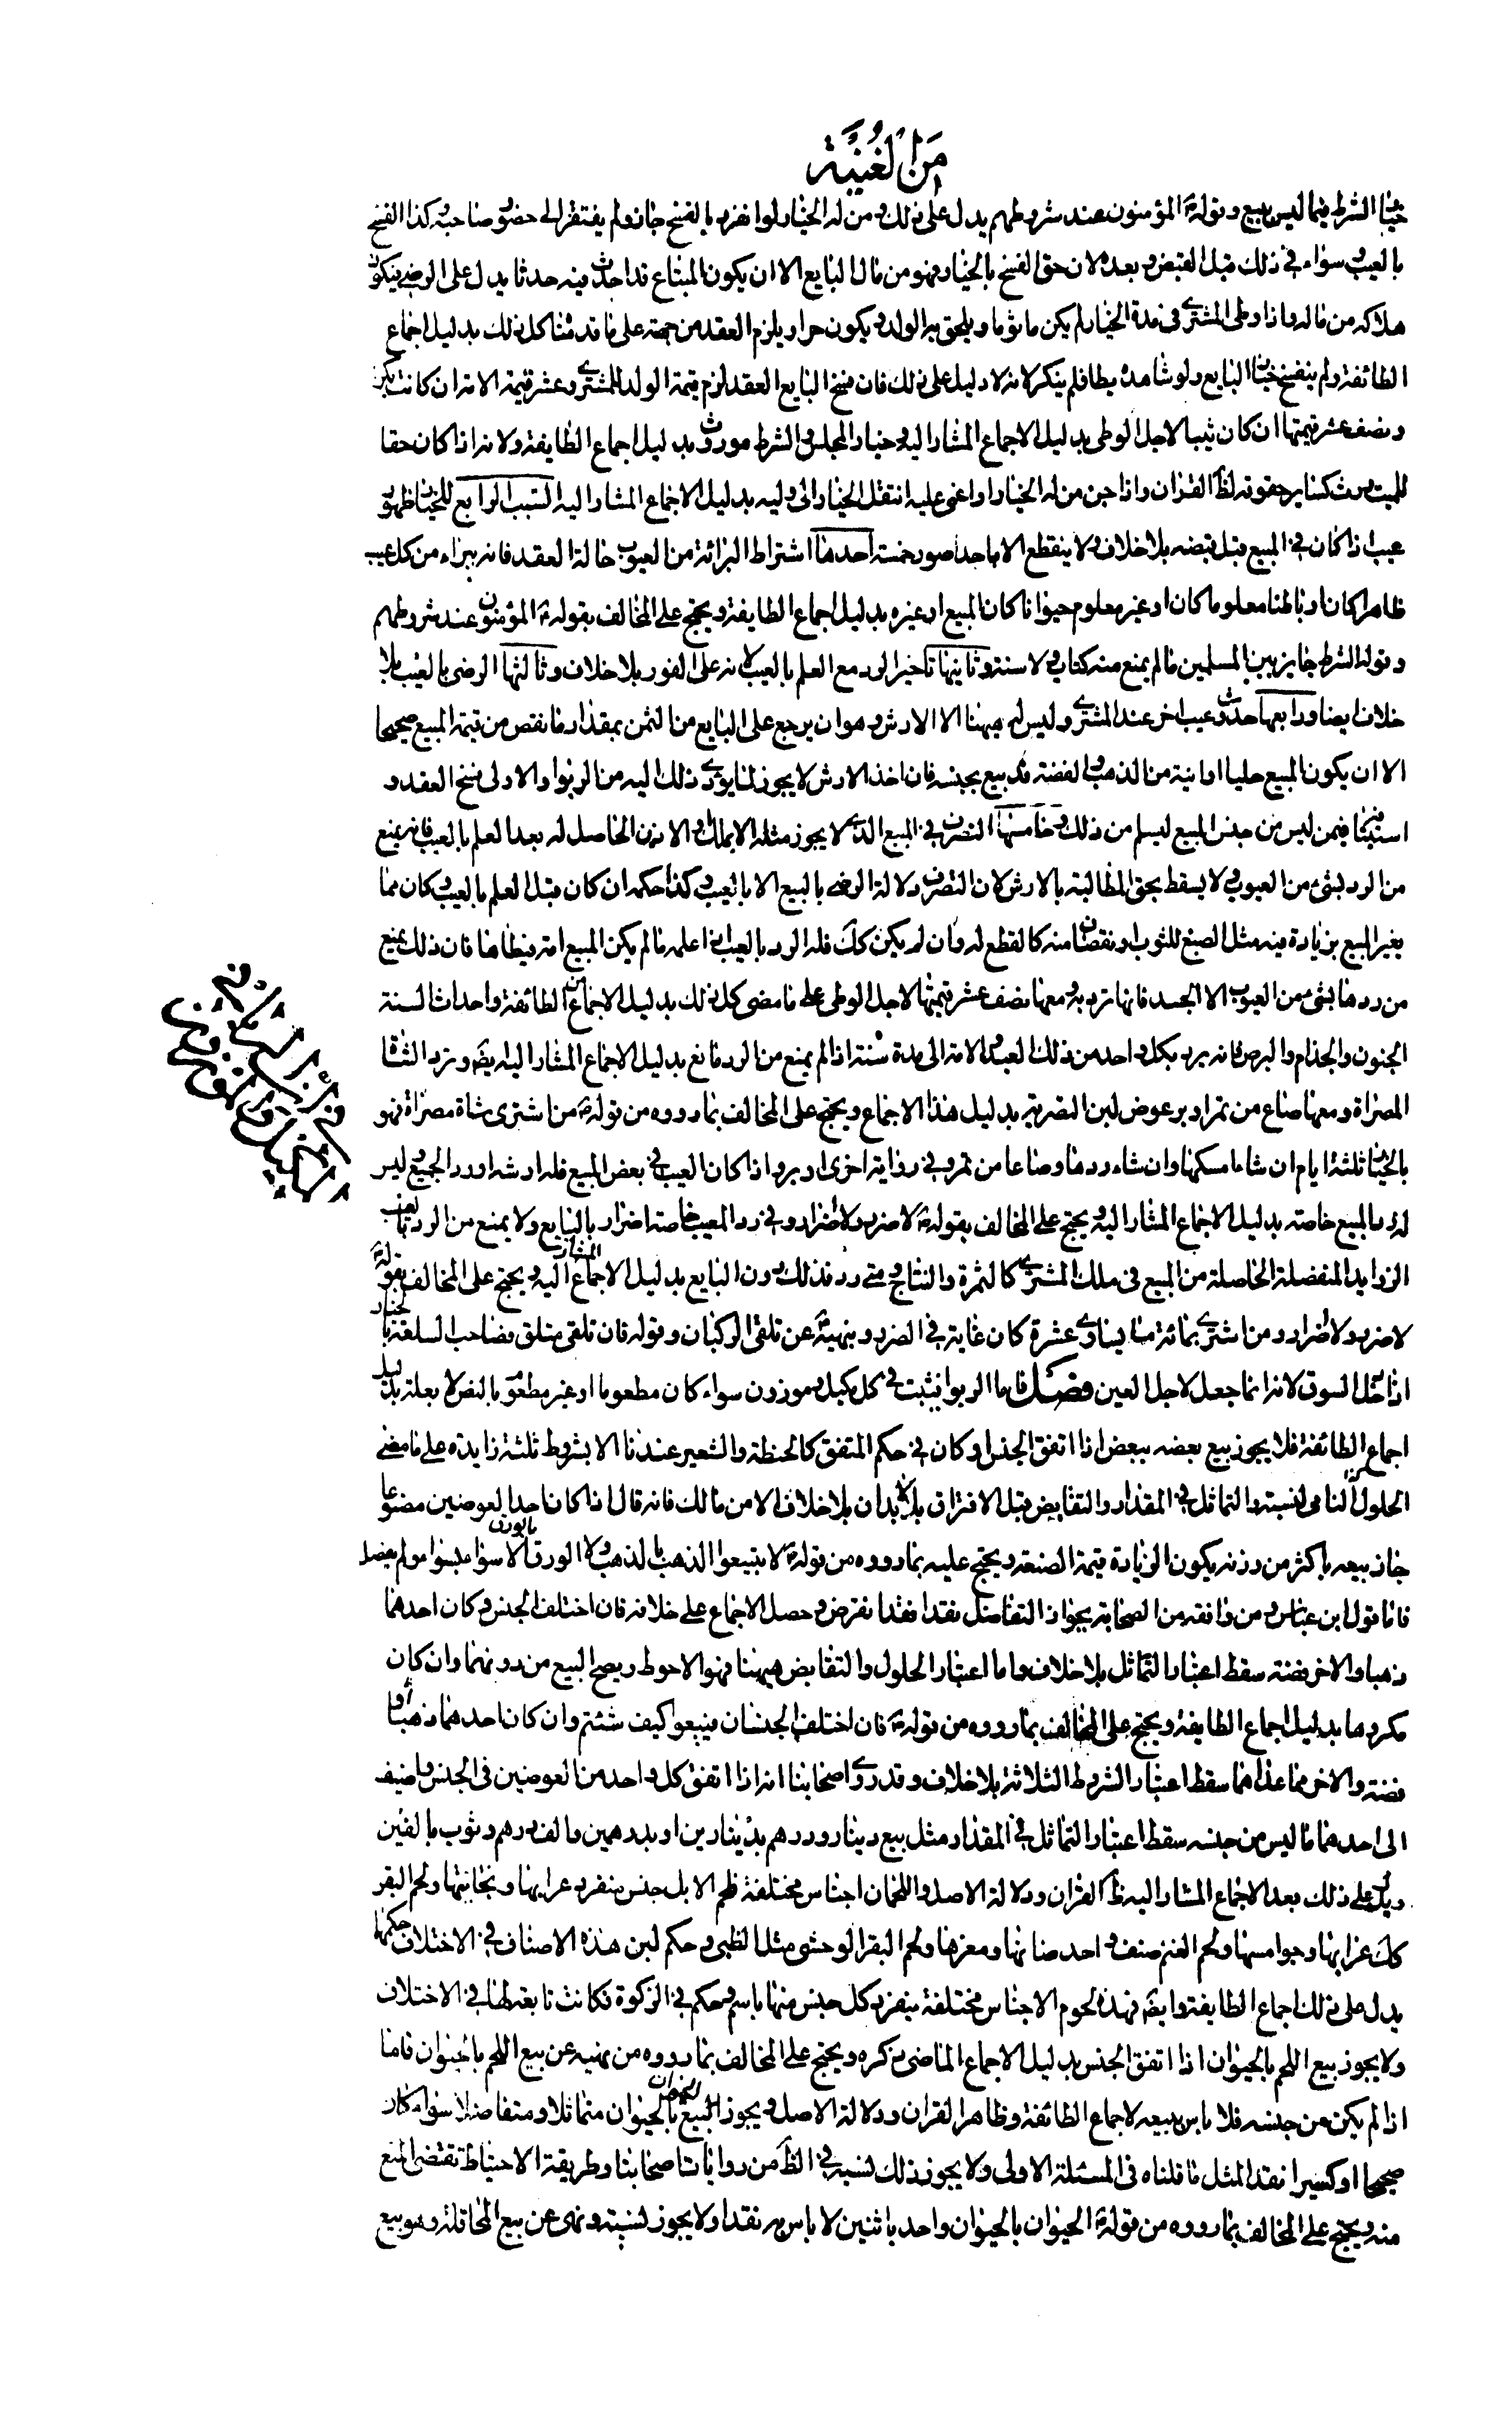 من الغنية
خيار الشرط فيما ليس ببيع وقوله ع المؤمنون عند شروطهم يدل على ذلك ومن له الخيار لو انفرد بالفسخ جاز ولم يفتقر الى حضور صاحبه وكذا الفسخ
بالعيب سواء في ذلك قبل القبض وبعده لان حق الفسخ بالخيار فهو من مال البايع الا ان يكون المبتاع قد احدث فيه حدثا يدل على الرضى فيكون
هلاكه من ماله واذا وطى المشترى في مدة الخيار لم يكن ماثوما ويلحق به الولد ويكون حرا ويلزم العقد من جهته على ما قدمناه كل ذلك بدليل اجماع
الطائفة ولم ينفسخ خيار البايع ولو شاهده يطا فلم ينكر لانه لا دليل على ذلك فان فسخ البايع العقد لزم قيمة الولد للمشترى وعشر قيمة الامة ان كانت بكرا
ونصف عشر قيمتها ان كان ثيبا لاجل الوطى بدليل الاجماع المشار اليه وخيار المجلس والشرط موروث بدليل اجماع الطايفة ولانه اذا كان حقا
للميت ورث كساير حقوقه لظ القران واذا جن من له الخيار او اغمى عليه انتقل الخيار الى وليه بدليل الاجماع المشار اليه السبب الرابع للخيار ظهور
عيب اذا كان في المبيع قبل قبضه بلا خلاف ولا ينقطع الا باحد امور خمسة احدها اشتراط البرائة من العيوب حالة العقد فانه يبراء من كل عيب
ظاهرا كان او باطنا معلوما كان او غير معلوم حيوانا كان المبيع او غيره بدليل اجماع الطايفة ويحتج على المخالف بقوله ع المؤمنون عند شروطهم
وقوله الشرط جايز بين المسلمين ما لم يمنع منه كتاب ولا سنة وثانيها تاخير الرد مع العلم بالعيب لانه على الفور بلا خلاف وثالثها الرضى بالعيب بلا
خلاف ايضا ورابعها حدوث عيب اخر عند المشترى وليس له هيهنا الا الارش وهو ان يرجع على البايع من الثمن بمقدار ما نقص من قيمة المبيع صحيحا
الا ان يكون المبيع حليا او انية من الذهب والفضة قد بيع بجنسه فان اخذ الارش لا يجوز لما يؤدى ذلك اليه من الربوا والاولى فسخ العقد و
ليس من جنس المبيع ليسلم من ذلك وخامسها التصرف في المبيع الذى لا يجوز مثله الا بملك او الاذن الحاصل له بعد العلم بالعيب فانه يمنع
من الرد بشئ من العيوب ولا يسقط بحق المطالبة بالارش لان التصرف دلالة الرضى بالبيع الا بالعيب وكذا حكمه ان كان قبل العلم بالعيب وكان مما
يغير المبيع بزيادة فيه مثل الصبغ للثوب او نقصان منه كالقطع له وان لم يكن كك فله الرد بالعيب اذا علمه ما لم يكن المبيع امة فيطاها فان ذلك يمنع
من ردها بشئ من العيوب الا الحبل فانها ترد به ومعها نصف عشر قيمتها لاجل الوطى على ما مضى كل ذلك بدليل الاجماع من الطائفة واحداث السنة
الجنون والجذام والبرص فانه يرد بكل واحد من ذلك العبد والامة الى مدة سنة اذا لم يمنع من الرد مانع بدليل الاجماع المشار اليه ايضا وترد الشاة
المصراة ومعها صاع من تمر او بر عوض لبن التصرية بدليل هذا الاجماع ويحتج على المخالف بما رووه من قوله ص من اشترى شاة مصراة فهو
بالخيار ثلثة ايام ان شاء امسكها وان شاء ردها وصاعا من تمر وفي رواية اخرى او بر واذا كان العيب في بعض المبيع فله ارشه او رد الجميع وليس
له رد المبيع خاصة بدليل الاجماع المشار اليه ويحتج على المخالف بقوله ص لا ضرر ولا ضرار وفي رد المعيب خاصة اضرار بالبايع ولا يمنع من الرد بالعيب
الزوايد المنفصلة الحاصلة من المبيع في ملك المشترى كالثمرة والنتاج ومتى رد فذلك دون البايع بدليل الاجماع المشار اليه ويحتج على المخالف بقوله ع
لا ضرر ولا ضرار ومن اشترى بمائة ما يساوى عشرة كان غاية في الضرر وبنهيه ع عن تلقى الركبان وقوله فان تلقى متلق فصاحب السلعة بالخيار
اذا دخل السوق لانه انما جعل لاجل الغبن فصل فاما الربوا فيثبت في كل مكيل وموزون سواء كان مطعوما او غير مطعوم بالنص لا بعلة بدليل
اجماع الطائفة فلا يجوز بيع بعضه ببعض اذا اتفق الجنس او كان في حكم المتفق كالحنطة والشعير عندنا الا بشروط ثلثة زايدة على ما مضى
الحلول النافى للنسية والتماثل في المقدار والتقابض قبل الافتراق بالابدان بلا خلاف الا من مالك فانه قال اذا كان احد العوضين مصنوعا
جاز بيعه باكثر من وزنه يكون الزيادة قيمة الصنعة ويحتج عليه بما رووه من قوله ع لا تبيعوا الذهب بالذهب ولا الورق بالورق الا سواء بسواء ولم يفصل
فاما قول ابن عباس ومن وافقه من الصحابة بجواز التفاضل نقدا فقد انقرض وحصل الاجماع على خلافه فان اختلف الجنس وكان احدهما
ذهبا والاخر فضة سقط اعتبار التماثل بلا خلاف واما اعتبار الحلول والتقابض هيهنا فهو الاحوط ويصح البيع من دونهما وان كان
مكروها بدليل اجماع الطايفة ويحتج على المخالف بما رووه من قوله ع فان اختلف الجنسان فبيعوا كيف شئتم وان كان احدهما ذهبا او
فضة والاخر مما عداهما سقط اعتبار الشروط الثلاثة بلا خلاف وقد روى اصحابنا انه اذا اتفق كل واحد من العوضين في الجنس واضيف
الى احدهما ما ليس من جنسه سقط اعتبار التماثل في المقدار مثل بيع دينار ودرهم بدينارين او بدرهمين والف درهم وثوب بالفين
ويدل على ذلك بعد الاجماع المشار اليه ظ القران ودلالة الاصل واللحمان اجناس مختلفة فلحم الابل جنس منفرد عرابها وبخاتيها ولحم البقر
كك عرابها وجواميسها ولحم الغنم صنف واحد ضانها ومعزها ولحم البقر الوحشى مثل الظبى وحكم لبن هذه الاصناف في الاختلاف حكمها
يدل على ذلك اجماع الطايفة وايضا فهذه لحوم الاجناس مختلفة ينفرد كل جنس منها باسم وحكم في الزكوة فكانت تابعة لها في الاختلاف
ولا يجوز بيع اللحم بالحيوان اذا اتفق الجنس بدليل الاجماع الماضى ذكره ويحتج على المخالف بما رووه من نهيه عن بيع اللحم بالحيوان فاما
اذا لم يكن من جنسه فلا باس ببيعه لاجماع الطائفة وظاهر القران ودلالة الاصل ويجوز البيع الحيوان بالحيوان متماثلا ومتفاضلا سواء كان
صحيحا او كسيرا نقدا لمثل ما قلناه في المسئلة الاولى ولا يجوز ذلك نسية في الظ من روايات اصحابنا وطريقة الاحتياط تقتضى المنع
منه ويحتج على المخالف بما رووه من قوله ع الحيوان بالحيوان واحد باثنين لا باس به نقدا ولا يجوز نسية ونهى عن بيع المحاقلة وهو بيع